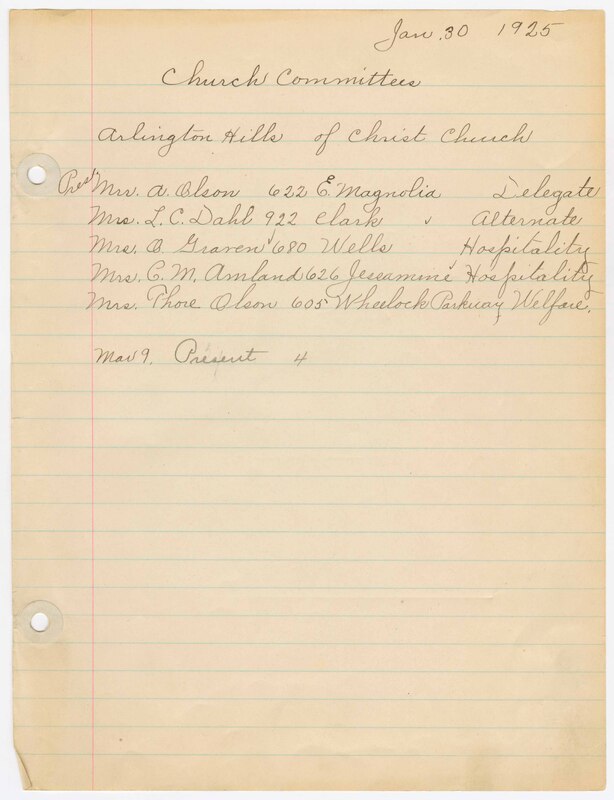 Jan. 30 1925
Church Committees
Arlington Hills of Christ Church
Pres. Mrs. A. Olson 622 E. Magnolia Delegate
Mrs. L. C. Dahl 922 Clark Alternate
Mrs. O Graven 680 Wells Hospitality
Mrs. C. M. Amland 626 Jessamine Hospitality
Mrs. Thore Olson 605 Wheelock Parkway Welfare.
Mar 9. Present 4